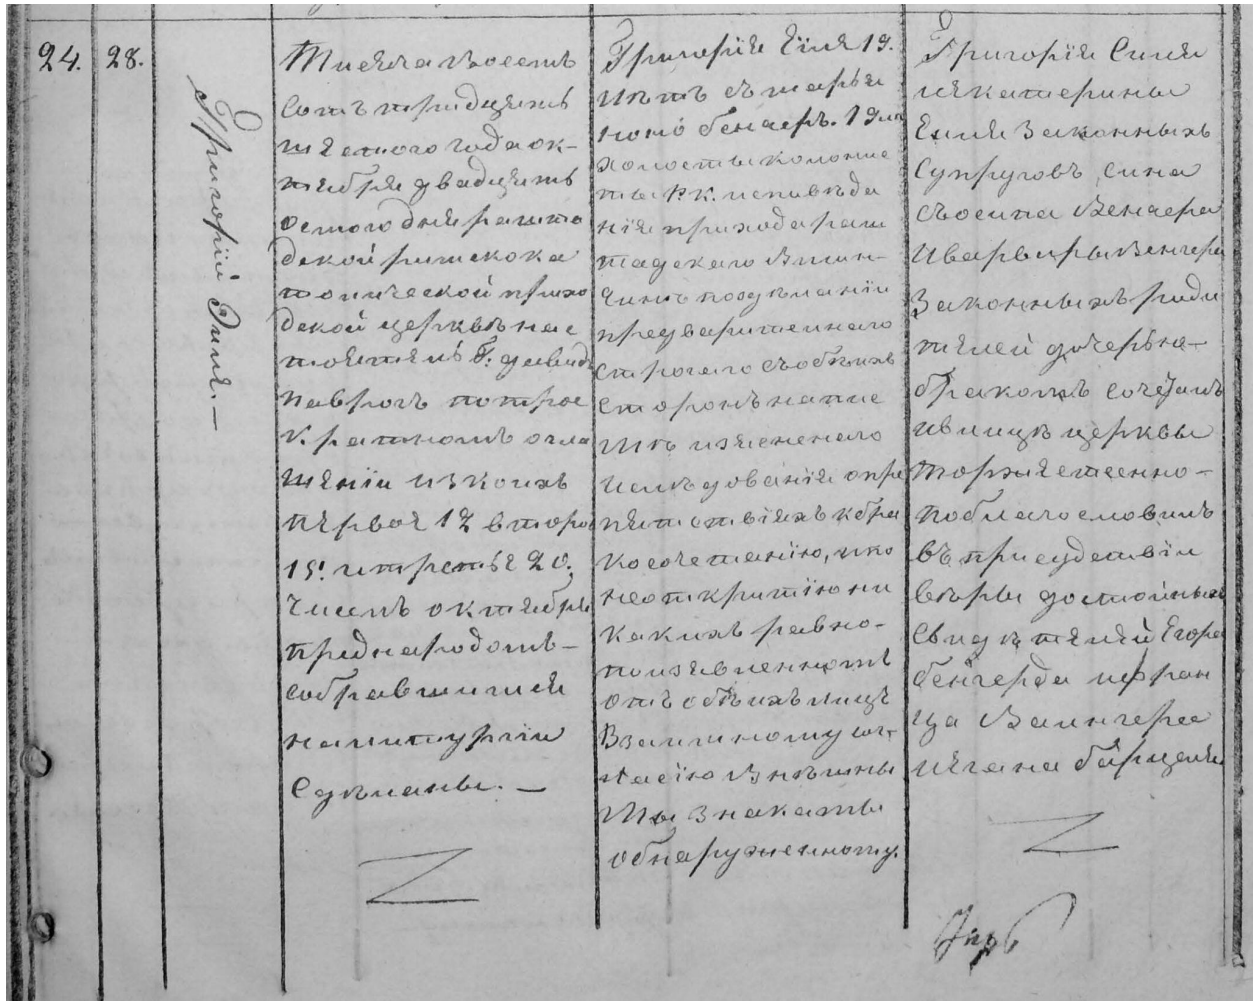 24.
28.
Григорій Эиля
Тисяча восемъ
сотъ тридцять
шестого года ок-
тября двадцять
осмого дня рашта
дской римскока
толической прихо
дской церкве нас
тоятель Г. давидъ
по трое
кратномъ огла
шении изкоихъ
первое 12 второе
15. и третье 20.
числъ октября
преднародомъ-
собравшимся
налитургіи
Сдѣланы. —
Григорія Еиля 19.
лѣтъ съ марья
ною бенгеръ. 19
холосты колонис
ты Р. К. исповѣда
нія прихода раш
тадскаго
чинъ поодѣланіи
предварителнаго
строгаго съобѣихъ
сторонъ напис
мѣ изясненаго
изслѣдованія опре
пятствіяхъ кбра
косочетанію, ико
неоткритію ни
какихъ равно-
поизявленномъ
отъ обѣихъ лицъ
Взаимному сог-
ласію внѣшны
мы знакамы
обнаруженному.
Григорія Симя
иекатерины
Еиля Законныхъ
Супруговъ, сина
съосипа Венгера
Иварвары Венгера
Законныхъ роди
телей дочерью-
бракомъ сочеталъ
ивлицѣ церквы
торжественно-
поблагословилъ
въ присудствіи
вѣры достойныхъ
свидѣтелей Егора
бенгерда ифран
ца Вайнгера